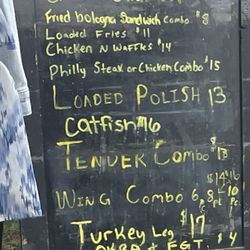 Fried bologna Sandwich combo $8
Loaded Fries $11
Chicken N Waffles $14
Philly Steak or Chicken Combo $15
LOADED POLISH 13
Catfish $16
TENDER COMBO $13
$14 $16
WING COMBO 6 8 10
Turkey Leg $17
$4